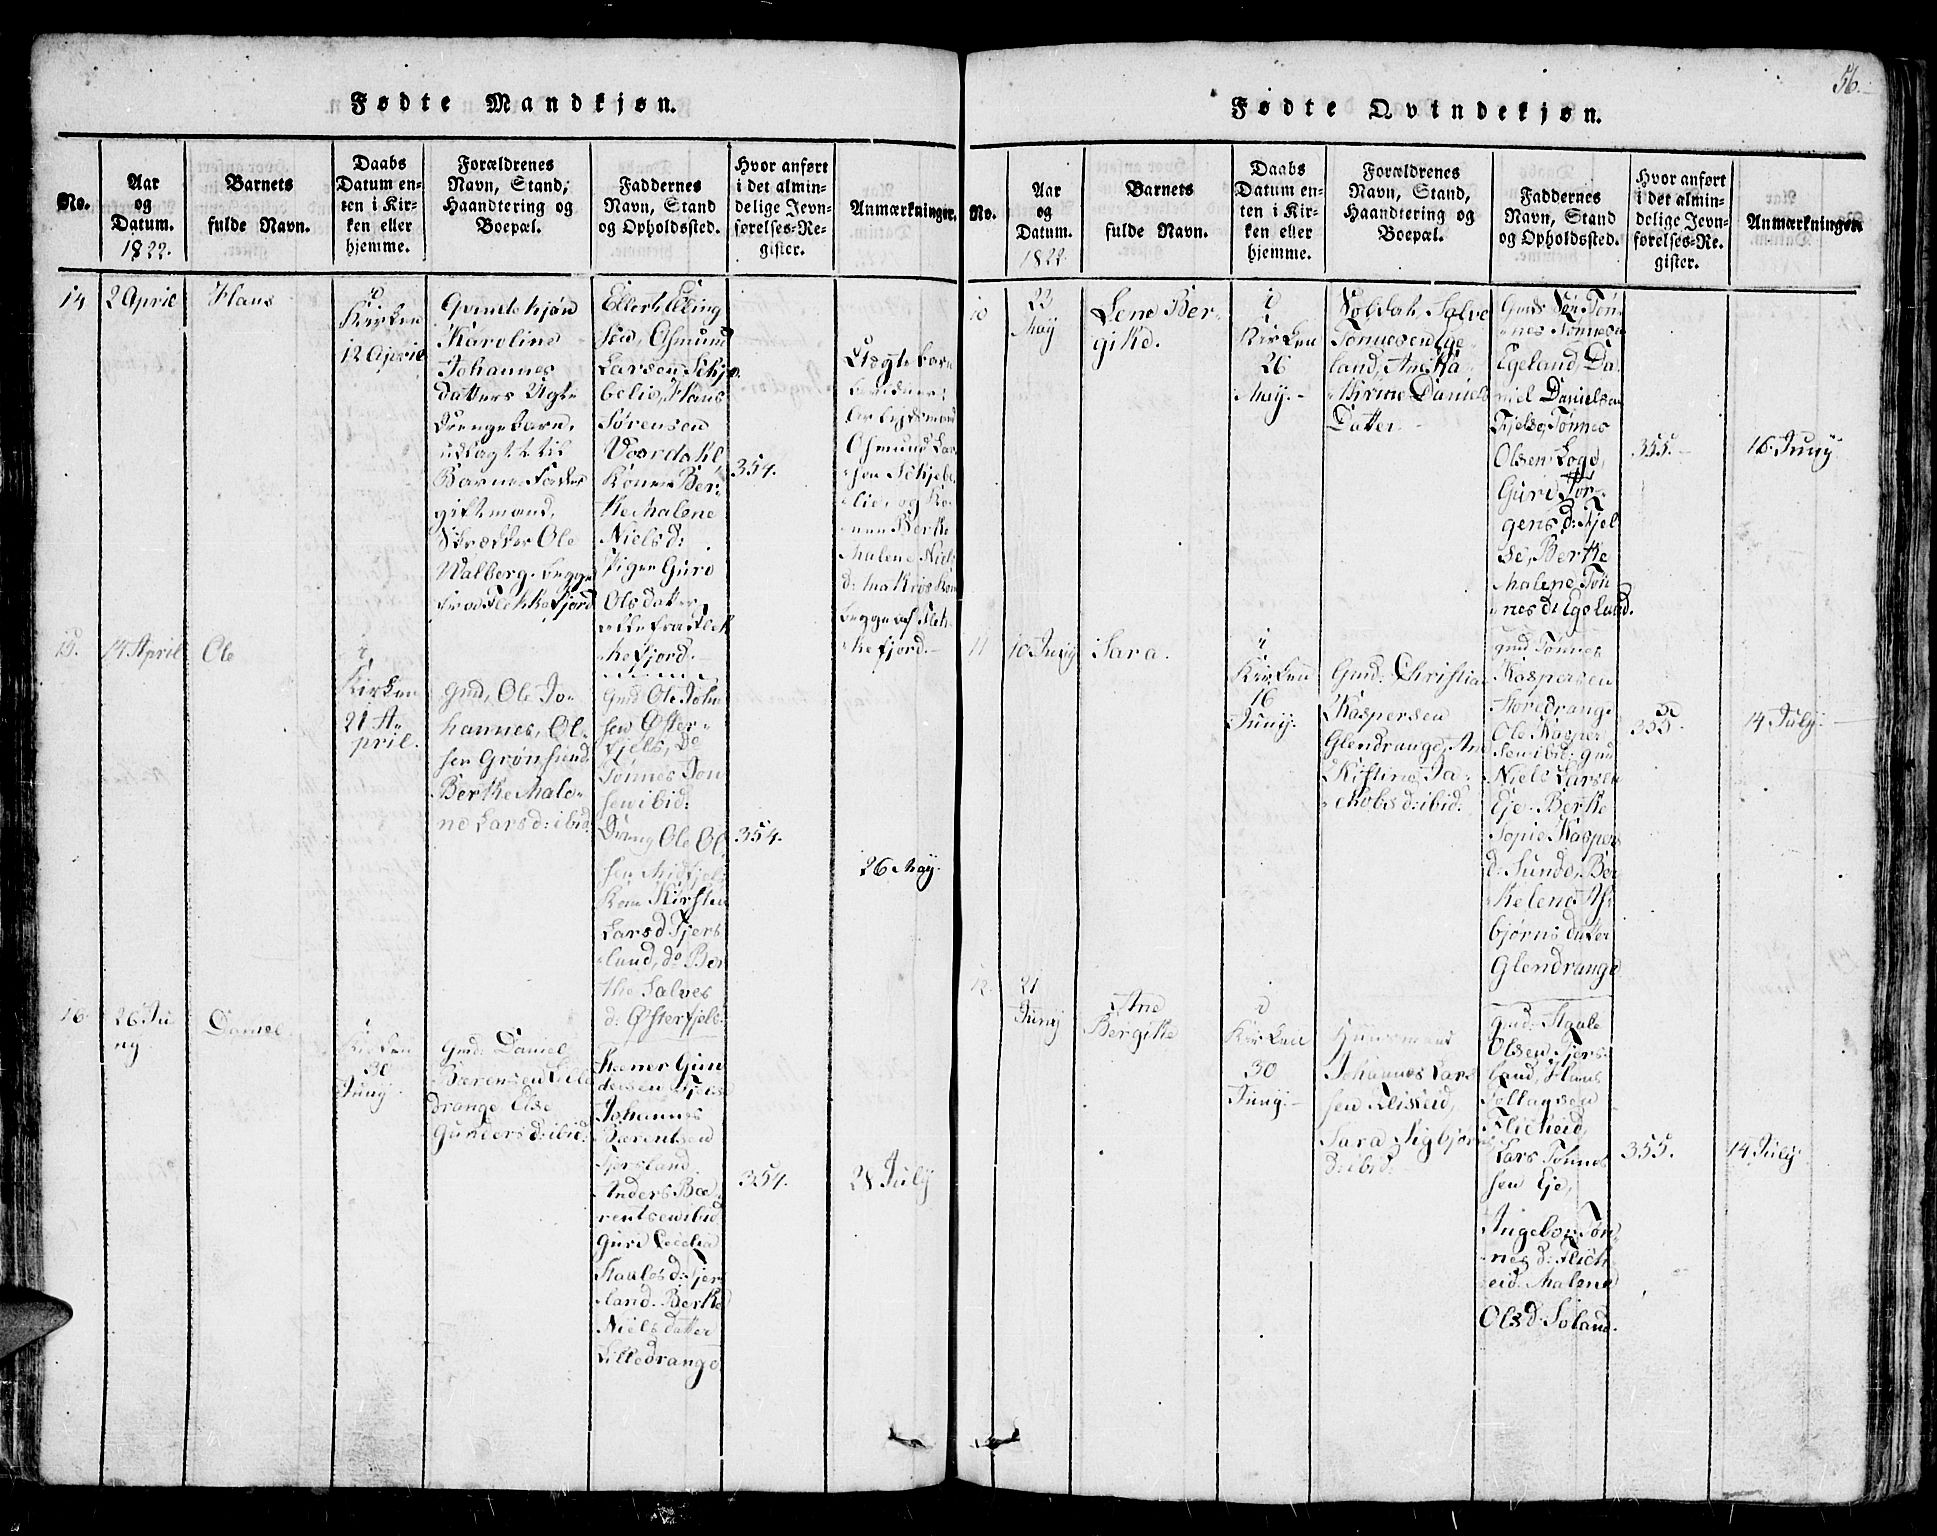 56.
Fødte Mandkjøn.
No.
Aar
og
Datum.
1822.
Barnets
fulde Navn.
Daabs
Datum en-
ten i Kir-
ken eller
hjemme.
Forældrenes
Navn, Stand,
Haandtering og
Boepæl.
Faddernes
Navn, Stand
og Opholdssted.
Hvor anført
i det almin-
delige Jevn-
førelses-Re-
gister.
Anmærkninger.
14
2 April
Hans
i
Kirken
12 April
Qvindekjøn
Karoline
Johannes
datters Ugte
Drengebarn,
udlagt til
Barne Fader
giftmand,
Skrædder Ole
Walberg. begge
fra Flekkefjord
Ellert Elling
sen, Asmund
Larsen Schje
belie, Hans
Sørensen
Voardahl
Konen Ber-
the Malene
Niels d:
Pigen Guro
Olsdatter,
alle fra Flek
kefjord.
354.
Uægte barn
Osmund Lar
sen Schjeb
lie, og Ko
nen Berthe
Malene Niels
d:
begge af Flek
kefjord.
15.
14 April
Ole
i
Kirken
21 A-
pril.
Gmd, Ole Jo-
hannes, Ol-
sen Grønsund
Berthe Male-
ne Lars d: ibid:
Gmd Ole John
sen Øster-
fjels, do
Tønnes Jon
sen ibid:
Dreng Ole Ol
sen Midfjel
Kone Kirsten
Lars d Fjers
land, do Ber
the Salves
d: Østerfjels.
354.
26 May.
16
26 Ju
ny
Daniel
i
Kirken
30
Juny
Gmd: Daniel
Bærensen Lile
drange Else
Gunders d: ibid:
Gun
dersen
Johannes
Bærentsen
Fjersland
Anders Bæ
rentsen ibid
Guro Cecelia
Staales d: Fjer
land. Berthe
Niels datter
Lilledrange
354.
28 July
Fødte Qvindekjøn.
No.
Aar
og
Datum.
1822
Barnets
fulde Navn.
Daabs
Datum en-
ten i Kir-
ken eller
hjemme.
Forældrenes
Navn, Stand,
Haandtering og
Boepæl.
Faddernes
Navn, Stand
og Opholdssted.
Hvor anført
i det almin-
delige Jevn-
førelses-Re-
gister.
Anmærkninger.
10
23
May
Lene Ber-
githe.
i
Kirken
26
May.
Soldat, Salve
Tønnesen Ege
land, Ane Ka
thrine Daniels
Datter.
Tøn-
nes Tønnesen
Egeland, Da
niel Danielsen
Fjelse, Tønnes
Olsen Loge,
Guri Tør-
gens d: Fjel
se, Berthe
Malene Tøn
nes d: Egeland.
355.
16 Juny
11
10 Juny
Sara.
i
Kirken
16
Juny.
Gmd: Christian
Kaspersen
Glendrange, Ane
Kistine Ja-
kobs d: ibid:
gmd Tønnes
Kaspersen
Storedrange
Ole Kasper
sen ibid: gmd
Niels Larsen
Eje. Berthe
Sopie Kaspers
d: Sunde, Ber
thelene As
bjørns datter
Glendrange
355.
14 July.
12.
21
Juny
Ane
Bergithe
i
Kirken
30
Juny.
Huusmand
Johannes Lars
sen Fliskeid,
Sara Sigbjørns
d: ibid:
gmd: Staale
Olsen Fjers
land, Hans
Tollagsen
Flicheid,
Lars Tønnes
sen Eje,
Ingebor Tøn
nes d: Flich
eid. Malene
Ols d: Soland.
355.
14 July.